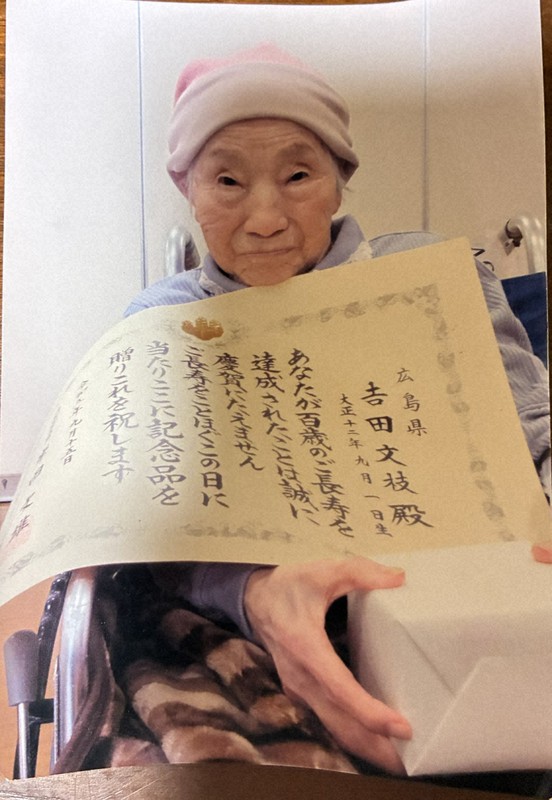 広島県
吉田文枝殿
大正十二年九月一日生
あなたが百歳のご長寿を
達成されたことは誠に
慶賀にたえません
ご長寿をことほぐこの日に
当たりここに記念品を
贈りこれを祝します